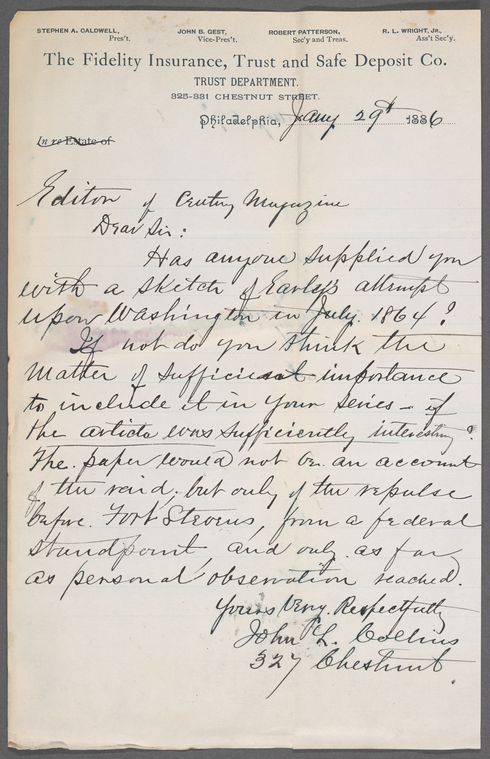 STEPHEN A. CALDWELL, JOHN B. GEST, ROBERT PATTERSON, R. L. WRIGHT, JR.,
Pres't. Vice-Pres't. Sec'y and Treas. Ass't Sec'y.
The Fidelity Insurance, Trust and Safe Deposit Co.
TRUST DEPARTMENT.
325-331 CHESTNUT STREET.
Philadelphia, Jany 29th 1886
In re Estate of
Editor of Century Magazine
Dear Sir:
Has anyone supplied you
with a sketch of Early's attempt
upon Washington in July. 1864?
If not do you think the
matter of sufficient importance
to include it in your series – if
the article was sufficiently interesting?
The paper would not be an account
of the raid; but only of the repulse
before Fort Stevens, from a federal
standpoint, and only as far
as personal observation reached.
Yours Very Respectfully
John L. Collins
327 Chestnut.